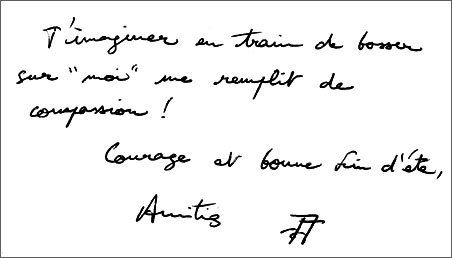 T'imaginer en train de bosser
sur "moi" me remplit de
compassion !
Courage et bonne fin d'été,
Amitiés